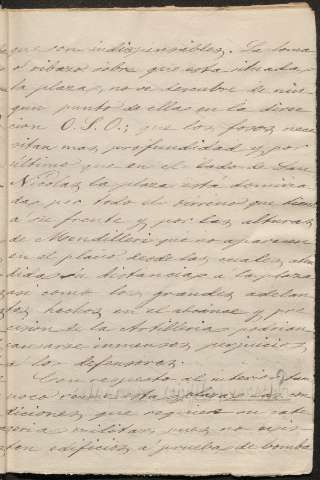 que son indispensables. La loma
o ribazo sobre que esta situada
la plaza, no se descubre de nin-
gun punto de ellas en la direc
cion O.S.O.; que los fosos nece
sitan mas profundidad y por
último que en el lado de San
Nicolas la plaza está domina
da por todo el terreno que tiene
a su frente y por las alturas
de Mendilleri que no aparecen
en el plano desde las cuales, aten
dida su distancia a la plaza
asi como los grandes adelan
tos hechos en el alcance y pre
cision de la Artilleria podrian
causarse inmensos perjuicios
a los defensores.
Con respecto al interior tam
poco reune esta plaza las con
diciones que requiere su cate
goria militar, pues no exis
ten edificios á prueba de bomba